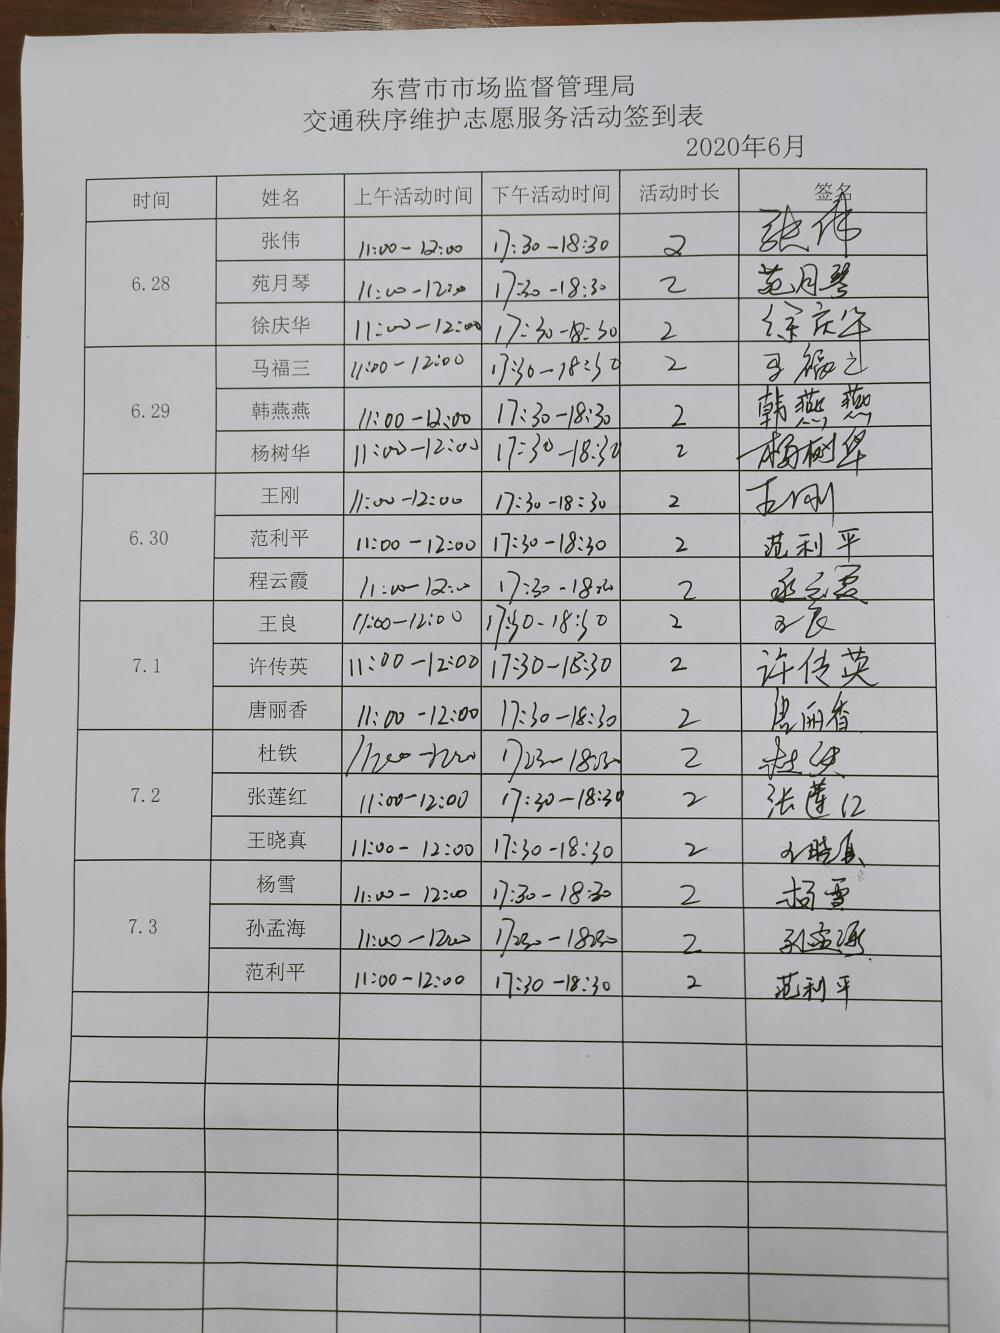 东营市市场监督管理局
交通秩序维护志愿服务活动签到表
2020年6月
时间 姓名 上午活动时间 下午活动时间 活动时长 签名
6.28 张伟 11:00-12:00 17:30-18:30 2 张伟
苑月琴 11:00-12:00 17:30-18:30 2 苑月琴
徐庆华 11:00-12:00 17:30-18:30 2 徐庆华
6.29 马福三 11:00-12:00 17:30-18:30 2 马福三
韩燕燕 11:00-12:00 17:30-18:30 2 韩燕燕
杨树华 11:00-12:00 17:30-18:30 2 杨树华
6.30 王刚 11:00-12:00 17:30-18:30 2 王刚
范利平 11:00-12:00 17:30-18:30 2 范利平
程云霞 11:00-12:00 17:30-18:30 2 程云霞
7.1 王良 11:00-12:00 17:30-18:30 2 王良
许传英 11:00-12:00 17:30-18:30 2 许传英
唐丽香 11:00-12:00 17:30-18:30 2 唐丽香
7.2 杜铁 11:00-12:00 17:30-18:30 2 杜铁
张莲红 11:00-12:00 17:30-18:30 2 张莲红
王晓真 11:00-12:00 17:30-18:30 2 王晓真
7.3 杨雪 11:00-12:00 17:30-18:30 2 杨雪
孙孟海 11:00-12:00 17:30-18:30 2 孙孟海
范利平 11:00-12:00 17:30-18:30 2 范利平